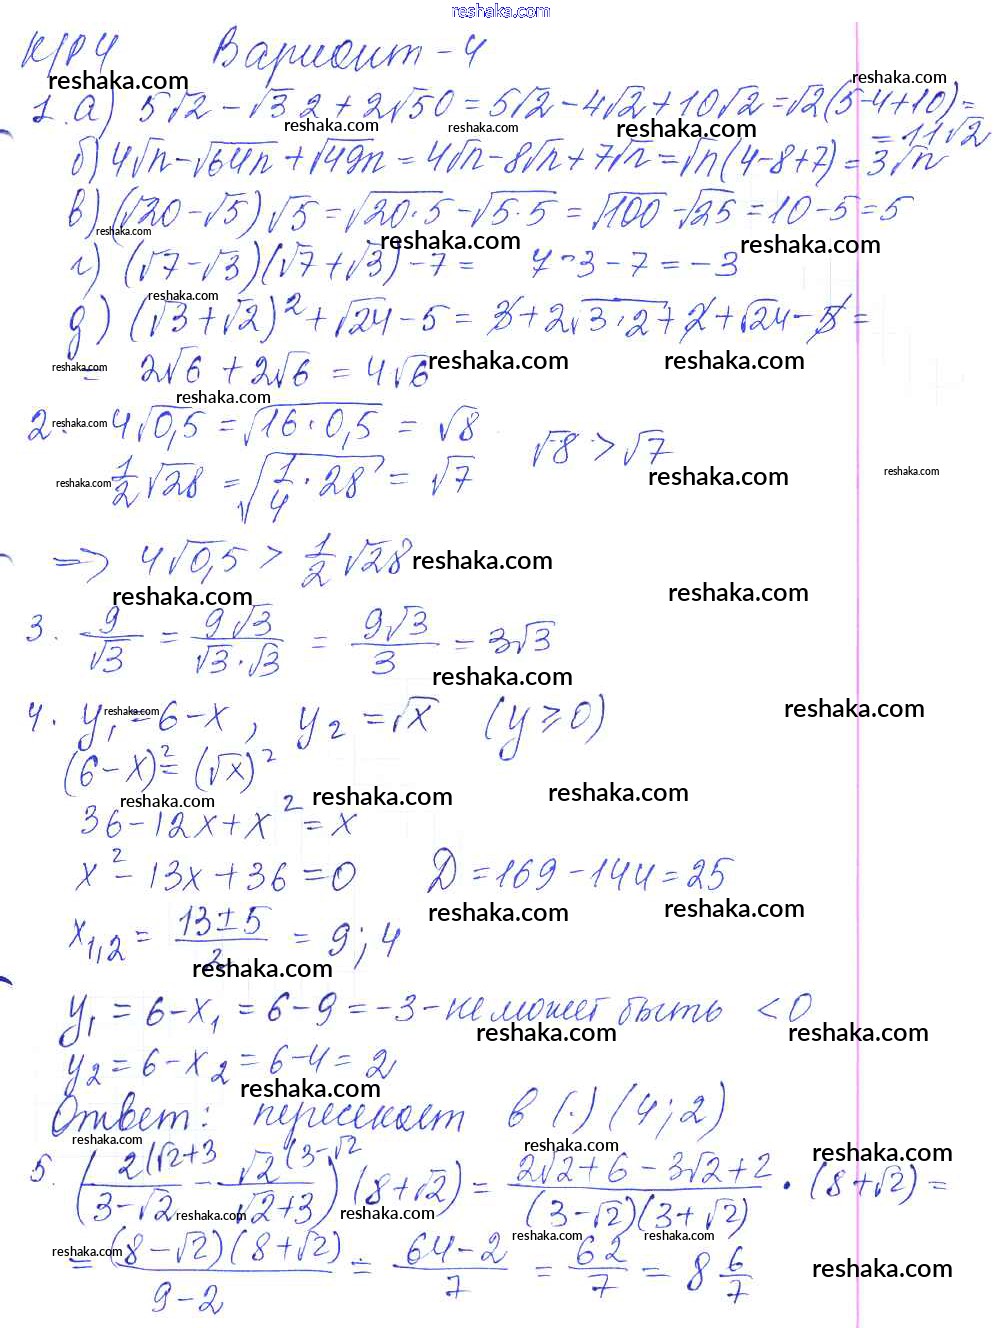 reshaka.com
К/Р 4 Вариант-4
1. а) 5√2 - √32 + 2√50 = 5√2 - 4√2 + 10√2 = √2(5-4+10) =
= 11√2
б) 4√n - √64n + √49n = 4√n - 8√n + 7√n = √n(4-8+7) = 3√n
в) (√20 - √5)√5 = √20·5 - √5·5 = √100 - √25 = 10-5 = 5
г) (√7-√3)(√7+√3) - 7 = 7-3-7 = -3
д) (√3+√2)² + √24 - 5 = 3 + 2√3·2 + 2 + √24 - 5 =
= 2√6 + 2√6 = 4√6
2. 4√0,5 = √16·0,5 = √8 √8 > √7
1/2 √28 = √1/4·28 = √7
=> 4√0,5 > 1/2 √28
3. 9/√3 = 9√3/√3·√3 = 9√3/3 = 3√3
4. y₁ = 6-x, y₂ = √x (y ≥ 0)
(6-x)² = (√x)²
36-12x+x² = x
x² - 13x + 36 = 0 D = 169-144 = 25
x₁,₂ = 13±5/2 = 9; 4
y₁ = 6-x₁ = 6-9 = -3 - не может быть < 0
y₂ = 6-x₂ = 6-4 = 2
Ответ: пересекает в (·) (4; 2)
5. (2(√2+3/3-√2 - √2(3-√2/√2+3)(8+√2) = 2√2+6-3√2+2/(3-√2)(3+√2) · (8+√2) =
= (8-√2)(8+√2)/9-2 = 64-2/7 = 62/7 = 8 6/7